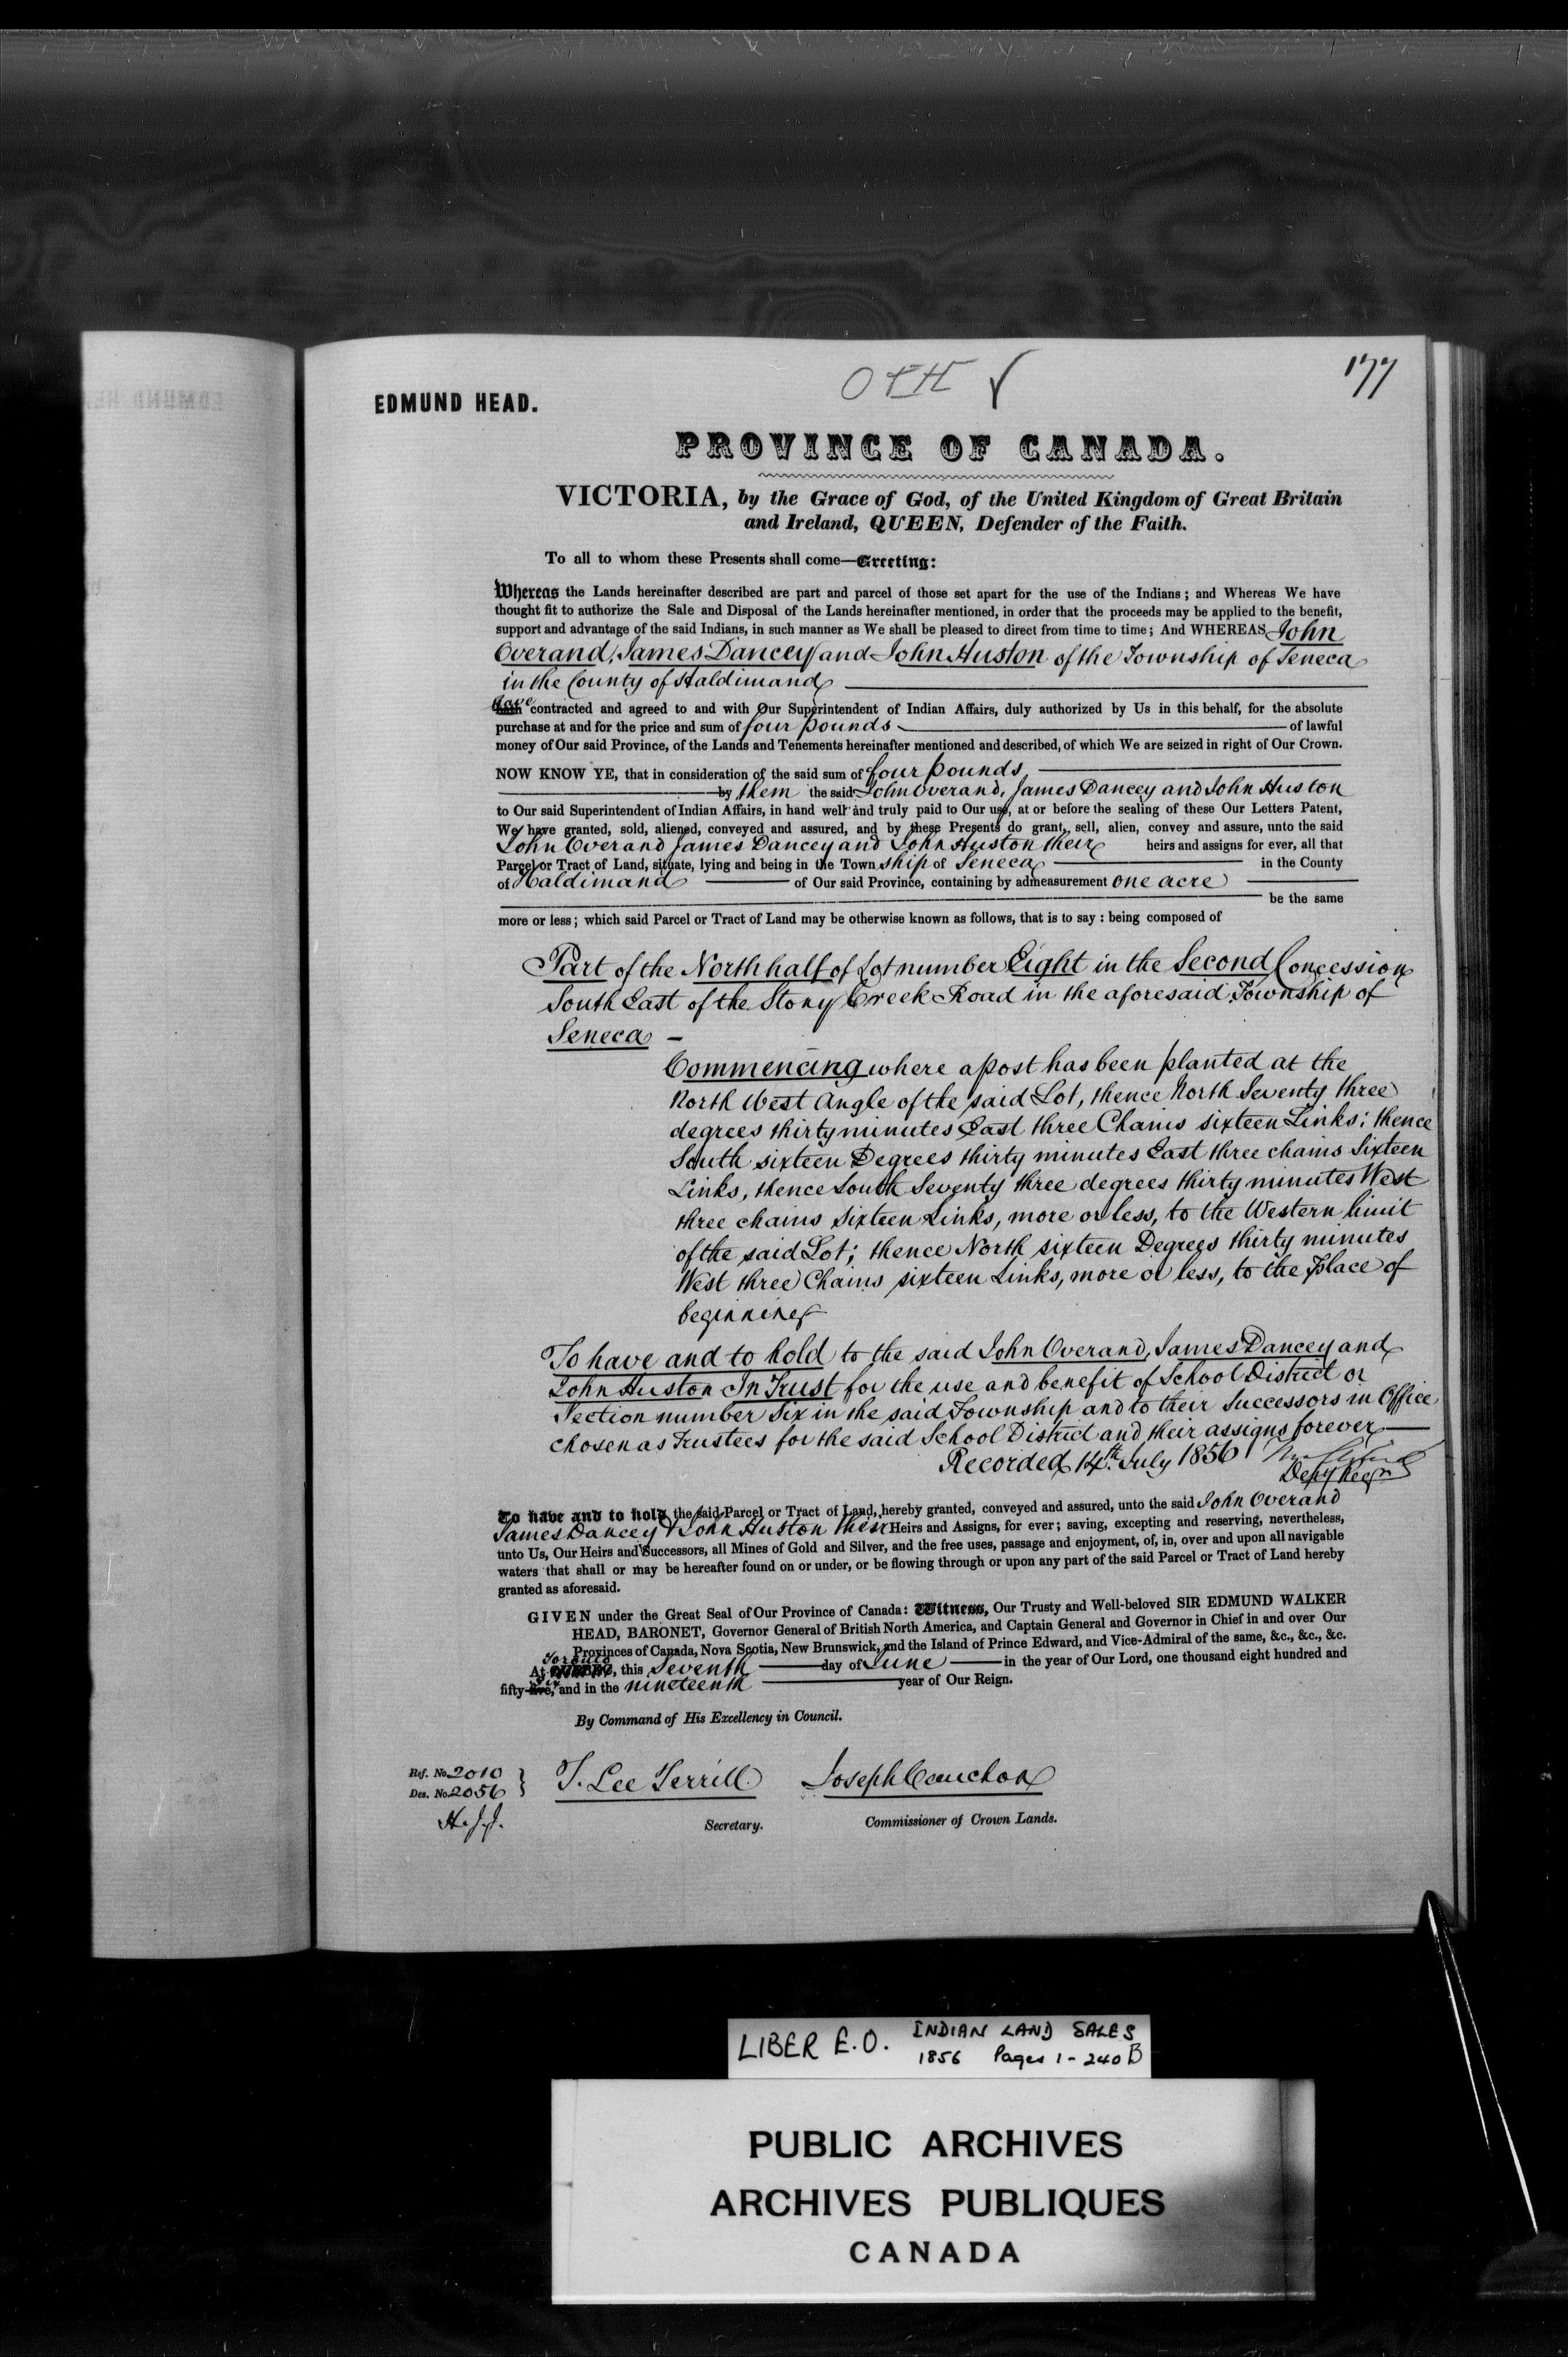 OTH ✓
177
EDMUND HEAD.
PROVINCE OF CANADA.
VICTORIA, by the Grace of God, of the United Kingdom of Great Britain
and Ireland, QUEEN, Defender of the Faith.
To all to whom these Presents shall come—Greeting:
Whereas the Lands hereinafter described are part and parcel of those set apart for the use of the Indians; and Whereas We have
thought fit to authorize the Sale and Disposal of the Lands hereinafter mentioned, in order that the proceeds may be applied to the benefit,
support and advantage of the said Indians, in such manner as We shall be pleased to direct from time to time; And WHEREAS John
Overand, James Dancey and John Huston of the Township of Seneca
in the County of Haldimand
have contracted and agreed to and with Our Superintendent of Indian Affairs, duly authorized by Us in this behalf, for the absolute
purchase at and for the price and sum of four pounds of lawful
money of Our said Province, of the Lands and Tenements hereinafter mentioned and described, of which We are seized in right of Our Crown.
NOW KNOW YE, that in consideration of the said sum of four pounds
by them the said John Overand, James Dancey and John Huston
to Our said Superintendent of Indian Affairs, in hand well and truly paid to Our use, at or before the sealing of these Our Letters Patent,
We have granted, sold, aliened, conveyed and assured, and by these Presents do grant, sell, alien, convey and assure, unto the said
John Overand James Dancey and John Huston their heirs and assigns for ever, all that
Parcel or Tract of Land, situate, lying and being in the Town ship of Seneca in the County
of Haldimand of Our said Province, containing by admeasurement one acre
be the same
more or less; which said Parcel or Tract of Land may be otherwise known as follows, that is to say: being composed of
Part of the North half of Lot number Eight in the Second Concession
South East of the Stony Creek Road in the aforesaid Township of
Seneca –
Commencing where a post has been planted at the
North West Angle of the said Lot, thence North Seventy three
degrees thirty minutes East three Chains sixteen Links; thence
South sixteen Degrees thirty minutes East three chains Sixteen
Links, thence South Seventy three degrees thirty minutes West
three chains sixteen Links, more or less, to the Western limit
of the said Lot; thence North sixteen Degrees thirty minutes
West three Chains sixteen Links, more or less, to the place of
beginning
To have and to hold to the said John Overand, James Dancey and
John Huston In Trust for the use and benefit of School District or
Section number Six in the said Township and to their Successors in Office
chosen as Trustees for the said School District and their assigns forever
Recorded 14th July 1856
Depy Regr
To have and to hold the said Parcel or Tract of Land, hereby granted, conveyed and assured, unto the said John Overand
James Dancey & John Huston their Heirs and Assigns, for ever; saving, excepting and reserving, nevertheless,
unto Us, Our Heirs and Successors, all Mines of Gold and Silver, and the free uses, passage and enjoyment, of, in, over and upon all navigable
waters that shall or may be hereafter found on or under, or be flowing through or upon any part of the said Parcel or Tract of Land hereby
granted as aforesaid.
GIVEN under the Great Seal of Our Province of Canada: Witness, Our Trusty and Well-beloved SIR EDMUND WALKER
HEAD, BARONET, Governor General of British North America, and Captain General and Governor in Chief in and over Our
Provinces of Canada, Nova Scotia, New Brunswick, and the Island of Prince Edward, and Vice-Admiral of the same, &c., &c., &c.
Toronto
At QUEBEC, this Seventh day of June in the year of Our Lord, one thousand eight hundred and
fifty-five, six and in the nineteenth year of Our Reign.
By Command of His Excellency in Council.
Ref. No. 2010
Des. No. 2056
T. Lee Terrill Joseph Cauchon
Secretary. Commissioner of Crown Lands.
LIBER E.O. INDIAN LAND SALES
1856 Pages 1 - 240 B
PUBLIC ARCHIVES
ARCHIVES PUBLIQUES
CANADA